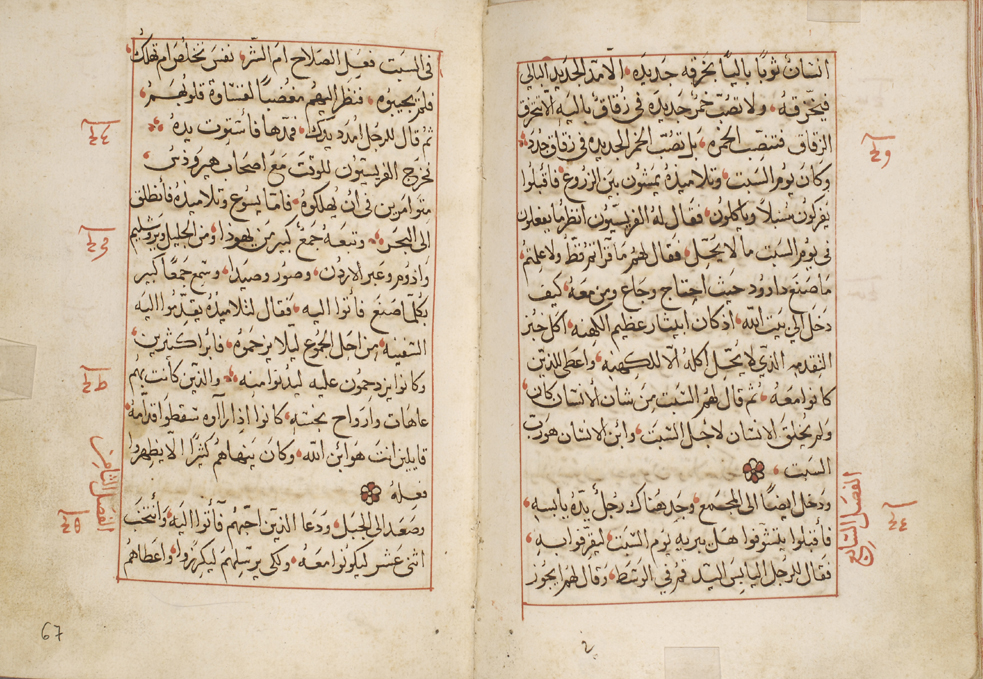 انسان ثوبًا باليًا بخرقه جديده الا مد الجديد البالي
فيخرقه ولا تصب خمر جديده في زقاق باليه لا تحرق
الزقاق فتنصب الخمره بل تصب الخمر الجديده في زقاق جدد
وكان يوم السبت وتلاميذه يمشون بين الزروع فاقبلوا
يفركون سنبلًا وياكلون فقال له الفريسيون انظر ما يفعلون
في يوم السبت ما لا يحل فقال لهم ما قراتم قط ولا علمتم
ما صنع داوود حيث احتاج وجاع ومن معه كيف
دخل الى بيت الله اذ كان ابيثار عظيم الكهنه اكل خبز
التقدمه الذي لا يحل اكله الا للكهنه واعطى للذين
كانوا معه ثم قال لهم السبت من شان الانسان كان
ولم يخلق الانسان لاجل السبت وابن الانسان هو رب
السبت
ودخل ايضًا الى المجمع وجد هناك رجل يده يابسه
الفصل السابع
فاقبلوا يتشوفوا هل يبريه يوم السبت ليقرفوا به
فقال للرجل اليابس اليد قم في الوسط وقال لهم ايجوز
في السبت فعل الصلاح ام الشر نفس تخلص ام تهلك
فلم يجيبوه فنظر اليهم مغضبًا لقساوة قلوبهم
ثم قال للرجل امدد يدك فمدها فاستوت يده
فخرج الفريسيون للوقت مع اصحاب هيرودس
متوامرين في ان يهلكوه فاما يسوع وتلاميذه فانطلق
الى البحر وتبعه جمع كبير من يهودا ومن الجليل ويروشليم
وادوم وعبر الاردن وصور وصيدا وسمع جمعًا كبير
بكلما صنع فاتوا اليه فقال لتلاميذه يقدموا اليه
السفينه من اجل الجموع ليلا يزحموه فابرا كثيرين
وكانوا يزدحمون عليه ليدنوا منه والذين كانت بهم
عاهات وارواح نجسه كانوا اذا راوه سقطوا قدامه
قايلين انت هو ابن الله وكان ينهاهم كثيرًا الا يظهروا
فعله
الفصل الثامن
وصعد الى الجبل ودعا الذين احبهم فاتوا اليه وانتخب
اثنى عشر ليكونوا معه ولكي يرسلهم ليكرزوا واعطاهم
67